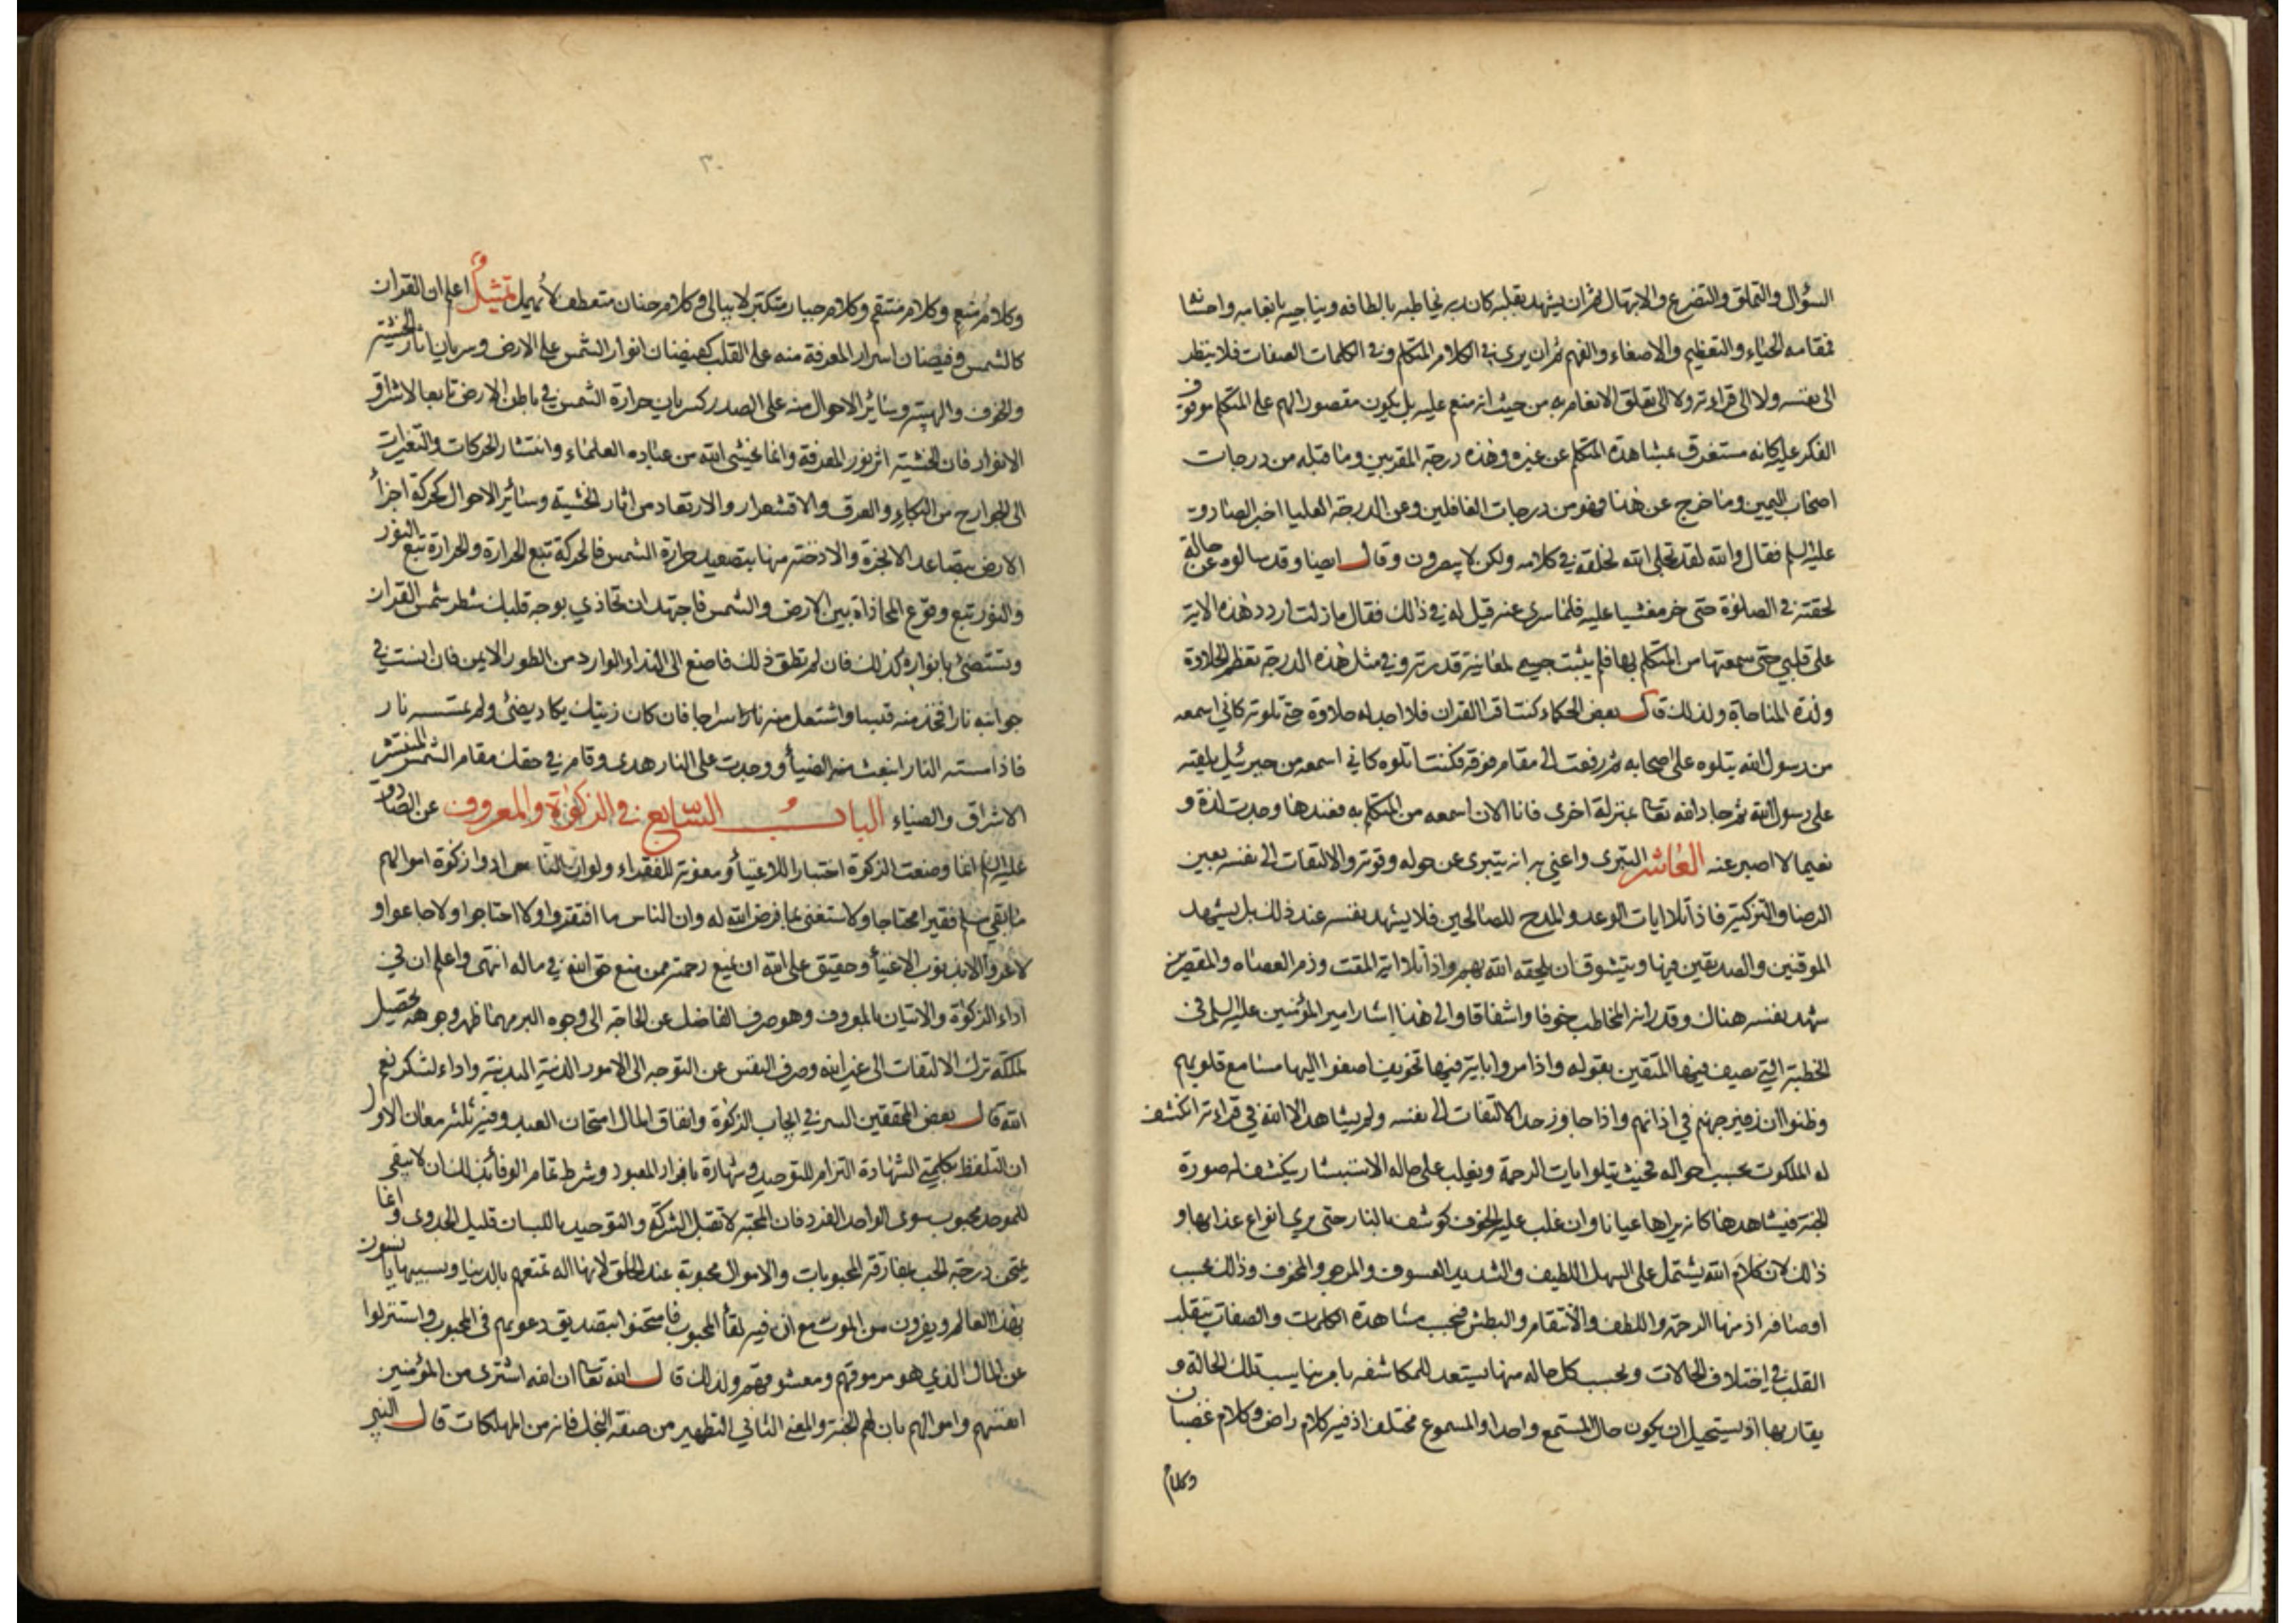 السؤال والتملق والتضرع والابتهال ثم ان يشهد بقلبه كان ربه يخاطبه بالطافه ويناجيه بانعامه واحسانه
فمقامه الحياء والتعظيم والاصغاء والفهم ثم ان يرى في الكلام المتكلم وفي الكلمات الصفات فلا ينظر
الى نفسه ولا الى قراءته ولا الى تعلق الانعام به من حيث انه منعم عليه بل يكون مقصور الهم على المتكلم موقوف
الفكر عليه كانه مستغرق بمشاهدة المتكلم عن غيره وهذه درجة المقربين وما قبله من درجات
اصحاب اليمين وما خرج عن هذا فهو من درجات الغافلين وعن الدرجة العليا اخبر الصادق
عليه السلم فقال والله لقد تجلى الله لخلقه في كلامه ولكن لا يبصرون وقال ايضا وقد سالوه عن حالة
لحقته في الصلوة حتى خر مغشيا عليه فلما سرى عنه قيل له في ذلك فقال ما زلت اردد هذه الاية
على قلبي حتى سمعتها من المتكلم بها فلم يثبت جسمي لمعاينة قدرته وفي مثل هذه الدرجة تعظم الحلاوة
ولذة المناجاة ولذلك قال بعض الحكماء كنت اقرا القران فلا اجد له حلاوة حتى تلوته كاني اسمعه
من رسول الله يتلوه على اصحابه ثم رفعت الى مقام فوقه فكنت اتلوه كاني اسمعه من جبرئيل يلقيه
على رسول الله ثم جاد الله تعا بمنزلة اخرى فانا الان اسمعه من المتكلم به فعندها وجدت لذة و
نعيما لا اصبر عنه العاشر التبرى واعني به انه يتبرى عن حوله وقوته والالتفات الى نفسه بعين
الرضا والتزكية فاذا تلا ايات الوعد والمدح للصالحين فلا يشهد نفسه عند ذلك بل يشهد
الموقنين والصديقين فيها ويتشوق ان يلحقه الله بهم واذا تلا اية المقت وذم العصاه والمقصرين
شهد نفسه هناك وقدر انه المخاطب خوفا واشفاقا والى هذا اشار امير المؤمنين عليه السلم في
الخطبة التي يصف فيها المتقين بقوله واذا مروا باية فيها تخويف اصغوا اليها مسامع قلوبهم
وظنوا ان زفير جهنم في اذانهم واذا جاوز حد الالتفات الى نفسه ولم يشاهد الا الله في قراءته انكشف
له الملكوت بحسب احواله فحيث يتلوا ايات الرحمة ويغلب على حاله الاستبشار يكشف له صورة
الجنة فيشاهدها كانه يراها عيانا وان غلب عليه الخوف كوشف بالنار حتى يرى انواع عذابها و
ذلك لان كلام الله يشتمل على السهل اللطيف والشديد العسوف والمرجو والمخوف وذلك بحسب
اوصافه اذ منها الرحمة واللطف والانتقام والبطش فبحسب مشاهدة الكلمات والصفات يتقلب
القلب في اختلاف الحالات وبحسب كل حاله منها يستعد للمكاشفه بامر يناسب تلك الحالة و
يقاربها اذ يستحيل ان يكون حال المستمع واحدا والمسموع مختلف اذ فيه كلام راض وكلام غضبان
وكلام
وكلام منعم وكلام منتقم وكلام جبار متكبر لا يبالي وكلام حنان متعطف لا يهمل تمثيل اعلم ان القران
كالشمس وفيضان اسرار المعرفة منه على القلب كفيضان انوار الشمس على الارض وسريان اثار الخشية
والخوف والهيبة وسائر الاحوال منه على الصدر كسريان حرارة الشمس في باطن الارض تابعا لاشراق
الانوار فان الخشية اثر نور المعرفة وانما يخشى الله من عباده العلماء وانتشار الحركات والتغيرات
الى الجوارح من البكاء والعرق والاقشعرار والارتعاد من اثار الخشية وسائر الاحوال كحركة اجزاء
الارض بتصاعد الابخرة والادخنة منها بتصعيد حرارة الشمس فالحركة تتبع الحرارة والحرارة تتبع النور
والنور يتبع وقوع المحاذاة بين الارض والشمس فاجتهد ان تحاذي بوجه قلبك شطر شمس القران
وتستضئ بانواره كذلك فان لم تطق ذلك فاصغ الى النداء الوارد من الطور الايمن فان انست في
جوانبه نارا فخذ منه قبسا واشتعل منه نارا سراجا فان كان زيتك يكاد يضئ ولو لم تمسسه نار
فاذا مسته النار انبعث منه الضياء ووجدت على النار هدى وقام في حقك مقام الشمس المنتشر
الاشراق والضياء الباب السابع في الزكوة والمعروف عن الصادق
عليه السلم انما وضعت الزكوة اختبارا للاغنياء ومعونة للفقراء ولو ان الناس ادوا زكوة اموالهم
ما بقي مسلم فقيرا محتاجا ولاستغنى بما فرض الله له وان الناس ما افتقروا ولا احتاجوا ولا جاعوا و
لا عروا الا بذنوب الاغنياء وحقيق على الله ان يمنع رحمته ممن منع حق الله في ماله انتهى واعلم ان في
اداء الزكوة والاتيان بالمعروف وهو صرف الفاضل عن الحاجة الى وجوه البر مهما ظهر وجوهه تحصيل
لملكة ترك الالتفات الى غير الله وصرف النفس عن التوجه الى الامور الدنية البدنية واداء لشكر نعم
الله قال بعض المحققين السر في ايجاب الزكوة وانفاق المال امتحان العبد وفيه ثلثة معان الاول
ان التلفظ بكلمتي الشهادة التزام للتوحيد وشهادة بافراد المعبود وشرط تمام الوفاء بذلك ان لا يبقى
للموحد محبوب سوى الواحد الفرد فان المحبة لا تقبل الشركة والتوحيد باللسان قليل الجدوى وانما
يمتحن درجة الحب بمفارقة المحبوبات والاموال محبوبة عند الخلق لانها اله تمتعهم بالدنيا وبسببها يانسون
بهذا العالم ويفرون من الموت مع ان فيه لقاء المحبوب فامتحنوا بتصديق دعويهم في المحبوب واستنزلوا
عن المال الذي هو مرموقهم ومعشوقهم ولذلك قال الله تعا ان الله اشترى من المؤمنين
انفسهم واموالهم بان لهم الجنة والمعنى الثاني التطهير من صفة البخل فانه من المهلكات قال النبي